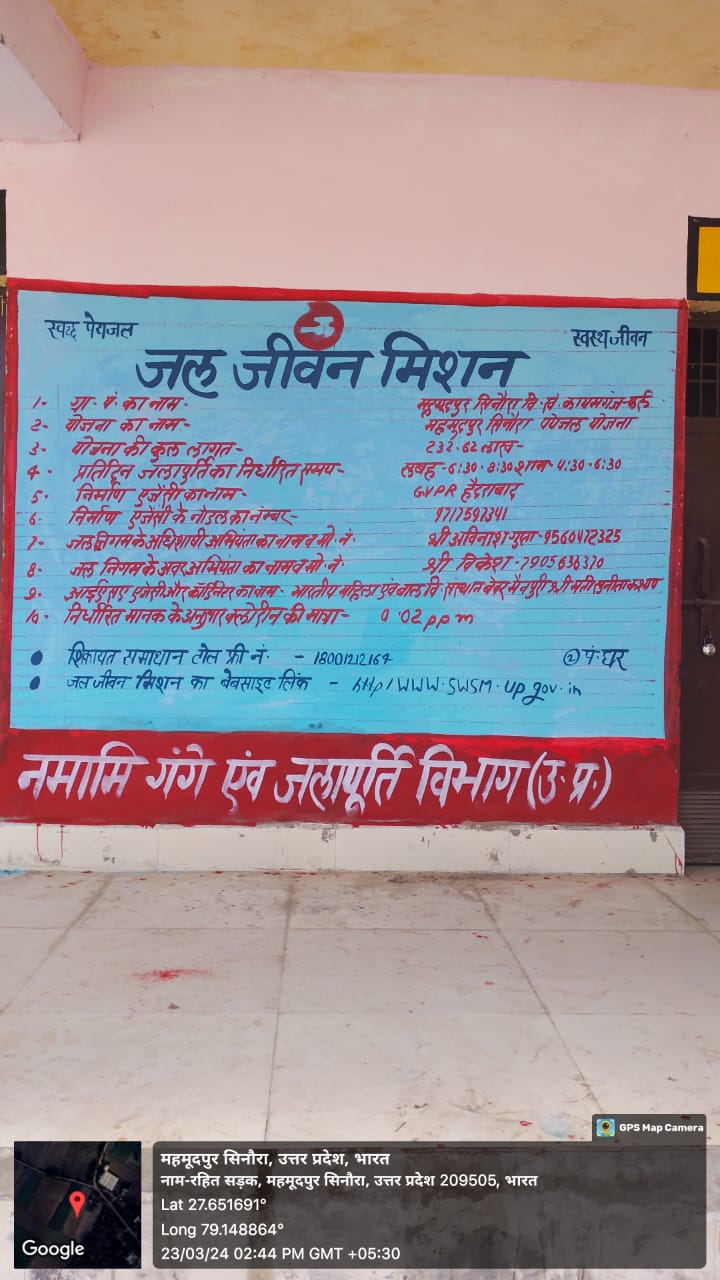 स्वच्छ पेयजल
स्वस्थ जीवन
जल जीवन मिशन
1- ग्रा. पं. का नाम- महमूदपुर सिनौरा वि. खं. कायमगंज-फर्रु
2- योजना का नाम- महमूदपुर सिनौरा पेयजल योजना
3- योजना की कुल लागत- 232.62 लाख-
4- प्रतिदिन जलापूर्ति का निर्धारित समय- सुबह-6:30-8:30 शाम-4:30-6:30
5- निर्माण एजेंसी का नाम- GVPR हैदराबाद
6- निर्माण एजेंसी के नोडल का नम्बर-
7- जल निगम के अधिशाषी अभियंता का नाम व मो. नं. श्री अविनाश गुप्ता-9560472325
8- जल निगम के अवर अभियंता का नाम व मो. नं. श्री विकेश-7905636370
9- आई एस ए एजेंसी और कॉर्डिनेटर का नाम- भारतीय महिला एवं बाल वि. संस्थान बेवर मैनपुरी श्री मती सुनीता कश्यप
10- निर्धारित मानक के अनुसार क्लोरीन की मात्रा- 0.02 ppm
● शिकायत समाधान टोल फ्री नं. - 18001212164
@ पं. घर
● जल जीवन मिशन का वेबसाइट लिंक - http/www.swsm.up.gov.in
नमामि गंगे एंव जलापूर्ति विभाग (उ. प्र.)
GPS Map Camera
महमूदपुर सिनौरा, उत्तर प्रदेश, भारत
नाम-रहित सड़क, महमूदपुर सिनौरा, उत्तर प्रदेश 209505, भारत
Lat 27.651691°
Long 79.148864°
23/03/24 02:44 PM GMT +05:30
Google